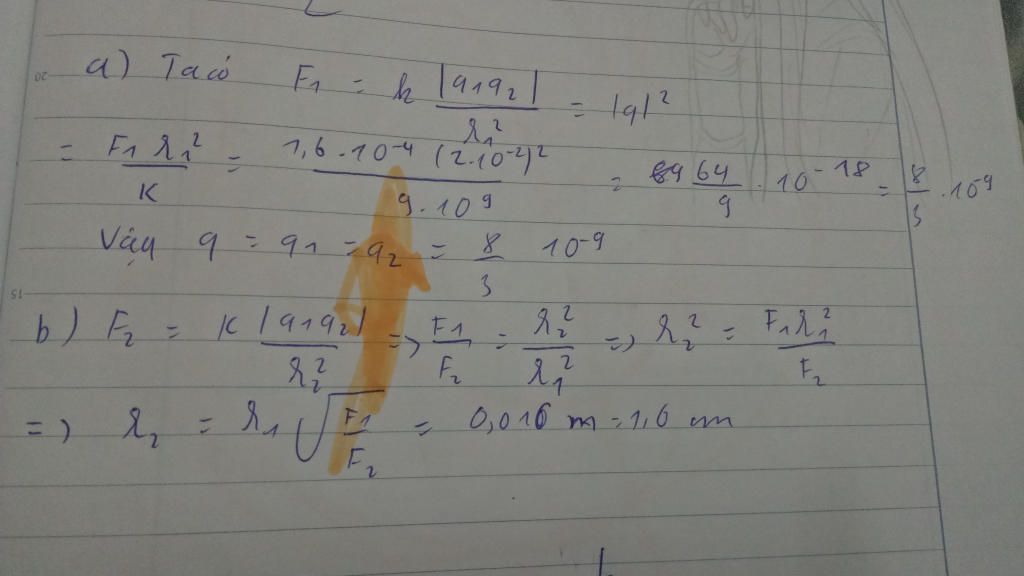 a) Ta có F₁ = k |q₁q₂| / r₁² = |q|²
= F₁ r₁² / K = 1,6 . 10⁻⁴ (2.10⁻²)² / 9 . 10⁹ = 64/9 . 10⁻¹⁸ = 8/3 . 10⁻⁹
Vậy q = q₁ = q₂ = 8/3 10⁻⁹
b) F₂ = K |q₁q₂| / r₂² => F₁/F₂ = r₂²/r₁² => r₂² = F₁r₁² / F₂
=> r₂ = r₁ √(F₁/F₂) = 0,016 m = 1,6 cm
20
15